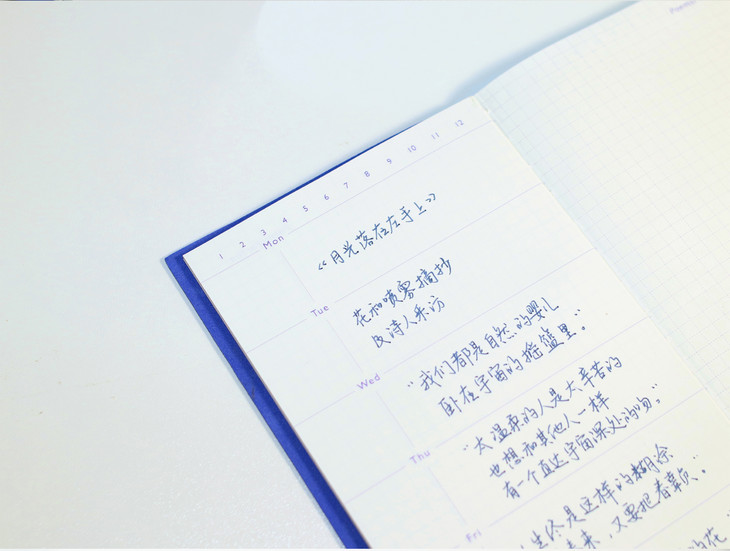 1 2 3 4 5 6 7 8 9 10 11 12
Mon
《月光落在左手上》
Tue
花和喷雾摘抄
及诗人采访
Wed
“我们都是自然的婴儿
卧在宇宙的摇篮里。”
Thu
“太温柔的人是太辛苦的
也想和其他人一样
有一个直达宇宙深处的吻。”
Fri
生终是这样的糊涂
来,又要把春辜负。”
的花